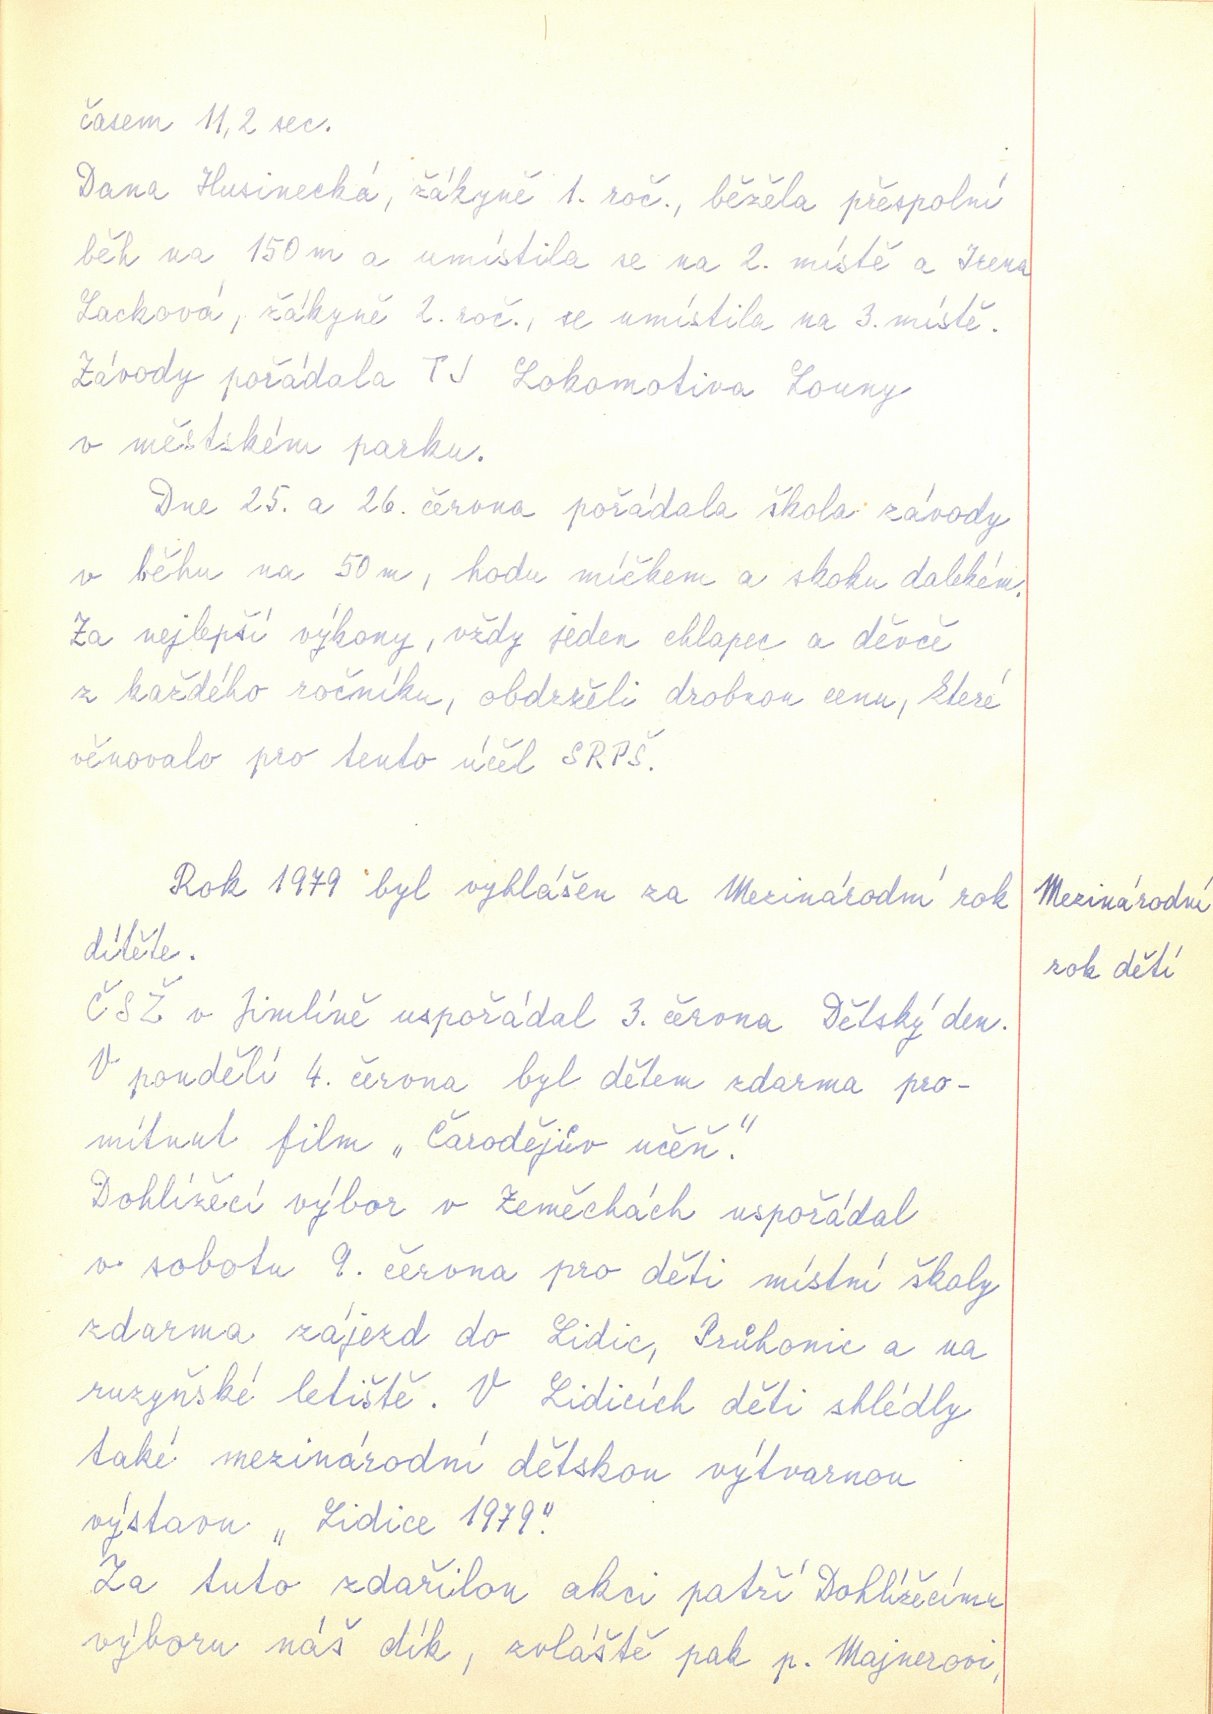 časem 11,2 sec.
Dana Husinecká, žákyně 1. roč., běžěla přespolní
běh na 150 m a umístila se na 2. místě a Irena
Lacková, žákyně 2. roč., se umístila na 3. místě.
Závody pořádala TJ Lokomotiva Louny
v městském parku.
Dne 25. a 26. června pořádala škola závody
v běhu na 50 m, hodu míčkem a skoku dalekém.
Za nejlepší výkony, vždy jeden chlapec a děvče
z každého ročníku, obdrželi drobnou cenu, které
věnovalo pro tento účel SRPŠ.
Rok 1979 byl vyhlášen za Mezinárodní rok
dítěte.
Mezinárodní
rok dětí
ČSŽ v Jimlíně uspořádal 3. června Dětský den.
V pondělí 4. června byl dětem zdarma pro-
mítnut film „Čarodějův učeň."
Dohlížecí výbor v Zeměchách uspořádal
v sobotu 9. června pro děti místní školy
zdarma zájezd do Lidic, Průhonic a na
ruzyňské letiště. V Lidicích děti shlédly
také mezinárodní dětskou výtvarnou
výstavu „Lidice 1979".
Za tuto zdařilou akci patří Dohlížecímu
výboru náš dík, zvláště pak p. Majnerovi,